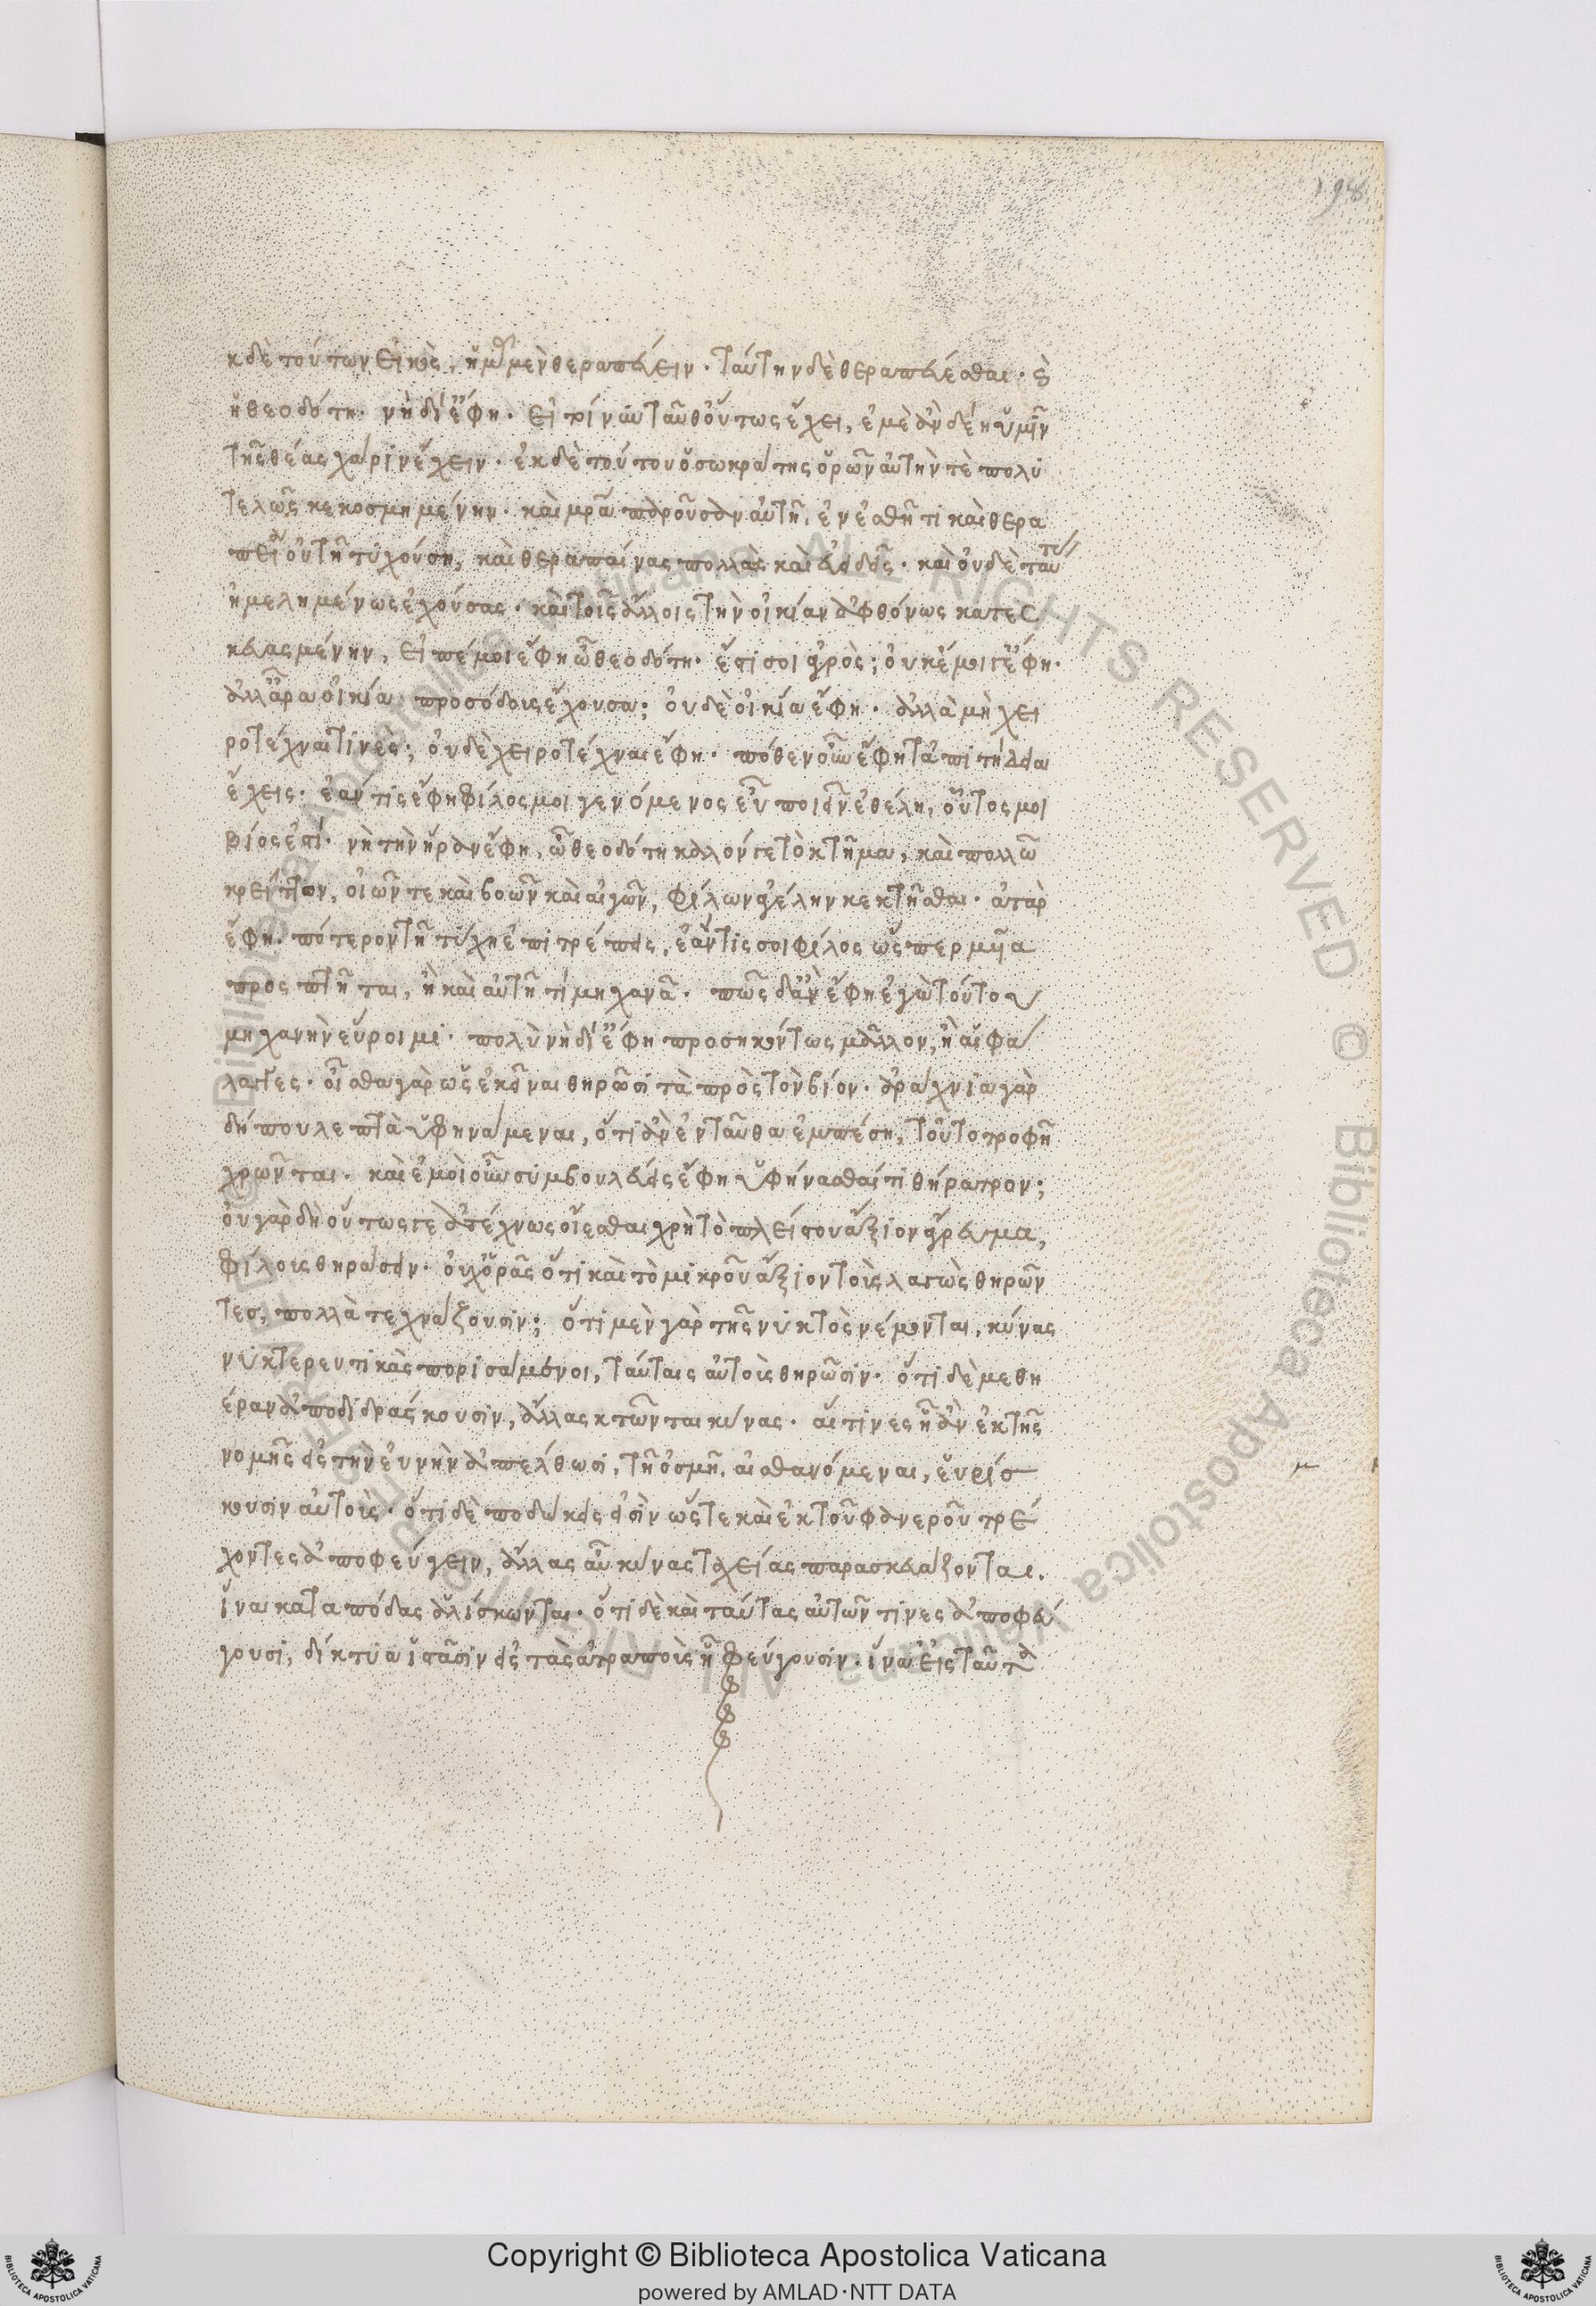 κ δὲ τούτων εἰκὸς, ἡμᾶς μὲν θεραπεύειν· ταύτην δὲ θεραπεύεσθαι· καὶ
ἡ θεοδότη· νὴ δί' ἔφη· εἰ τοίνυν ταῦθ' οὕτως ἔχει, ἐμὲ ἂν δέη ὑμῖν
τῆς θέας χάριν ἔχειν· ἐκ δὲ τούτου ὁ σωκράτης ὁρῶν αὐτήν τε πολυ
τελῶς κεκοσμημένην· καὶ μρ̃α παροῦσαν αὐτῆ, ἐν ἐσθῆτί καὶ θερα
πεία οὐ τῆ τυχούση, καὶ θεραπαίνας πολλὰς καὶ εὐειδεῖς· καὶ οὐδὲ ταύτ
ἠμελημένως ἐχούσας· καὶ τοῖς ἄλλοις τὴν οἰκίαν ἀφθόνως κατεσ
κευασμένην, εἰπέ μοι ἔφη ὦ θεοδότη· ἔστι σοι ἀγρὸς; οὐκ ἔμοιγ' ἔφη·
ἀλλ' ἄρα οἰκία προσόδους ἔχουσα; οὐδὲ οἰκία ἔφη· ἀλλὰ μὴ χει
ροτέχναι τινές; οὐδὲ χειροτέχναι ἔφη· πόθεν οὖν ἔφη τἀπιτήδεια
ἔχεις· ἐάν τις ἔφη φίλος μοι γενόμενος εὖ ποιεῖν ἐθέλη, οὗτος μοι
βίος ἐστί· νὴ τὴν ἥραν ἔφη, ὦ θεοδότη καλόν γε τὸ κτῆμα, καὶ πολλῶ
κρεῖττον, οἰῶν τε καὶ βοῶν καὶ αἰγῶν, φίλων ἀγέλην κεκτῆσθαι· ἀτὰρ
ἔφη· πότερον τῆ τύχη ἐπιτρέπεις, ἐάν τίς σοι φίλος ὥσπερ μυῖα
προσπτῆται, ἢ καὶ αὐτή τι μηχανᾶ· πῶς δ' ἂν ἔφη ἐγὼ τούτου
μηχανὴν εὕροιμι· πολὺ νὴ δί' ἔφη προσηκόντως μᾶλλον, ἢ αἱ φά
λαγγες· οἶσθα γὰρ ὡς ἐκεῖναι θηρῶσι τὰ πρὸς τὸν βίον· ἀράχνια γὰρ
δήπου λεπτὰ ὑφηνάμεναι, ὅτι ἂν ἐνταῦθα ἐμπέση, τούτο τροφῆ
χρῶνται· καὶ ἐμοὶ οὖν συμβουλεύεις ἔφη ὑφήνασθαί τι θήρατρον;
οὐ γὰρ δὴ οὕτως γε ἀτέχνως οἴεσθαι χρὴ τὸ πλείστου ἄξιον ἄγρευμα,
φίλους θηράσειν· οὐχ ὁρᾶς ὅτι καὶ τὸ μικροῦ ἄξιον τοὺς λαγὼς θηρῶν
τες, πολλὰ τεχνάζουσιν; ὅτι μὲν γὰρ τῆς νυκτὸς νέμονται, κύνας
νυκτερευτικὰς πορισάμενοι, ταύταις αὐτοὺς θηρῶσιν· ὅτι δὲ μεθη
έραν ἀποδιδράσκουσιν, ἄλλας κτῶνται κύνας· αἵτινες ἧ ἂν ἐκ τῆς
νομῆς εἰς τὴν εὐνὴν ἀπέλθωσι, τῆ ὀσμῆ αἰσθανόμεναι, εὑρίσ
κουσιν αὐτούς· ὅτι δὲ ποδώκεις εἰσὶν ὥστε καὶ ἐκ τοῦ φανεροῦ τρέ
χοντες ἀποφεύγειν, ἄλλας αὖ κύνας ταχείας παρασκευάζονται,
ἵνα κατὰ πόδας ἁλίσκωνται· ὅτι δὲ καὶ ταύτας αὐτῶν τινες ἀποφεύ
γουσι, δίκτυα ἱστᾶσιν εἰς τὰς ἀτραποὺς ἧ φεύγουσιν· ἵνα εἰς ταῦτα
Copyright © Biblioteca Apostolica Vaticana
powered by AMLAD·NTT DATA